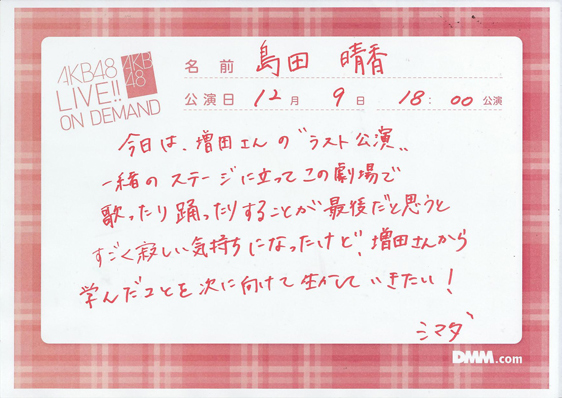 AKB48
LIVE!!
ON DEMAND
AKB
48
名前 島田 晴香
公演日 12月 9日 18:00公演
今日は、増田さんの"ラスト公演"
一緒のステージに立ってこの劇場で
歌ったり踊ったりすることが最後だと思うと
すごく寂しい気持ちになったけど、増田さんから
学んだことを次に向けて生かしていきたい!
シマダ
DMM.com